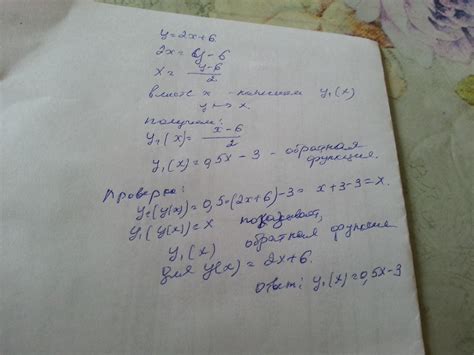 y=2x+6.
2x = y-6
x = y-6/2
вместо x - напишем y₁(x)
y ↦ x.
получаем:
y₁(x) = x-6/2
y₁(x)=0,5x-3 - обратная функция.
Проверка:
y₁(y(x))=0,5·(2x+6)-3= x+3-3=x.
y₁(y(x))=x показывает,
y₁(x) обратная функция
для y(x)= 2x+6.
ответ: y₁(x)=0,5x-3